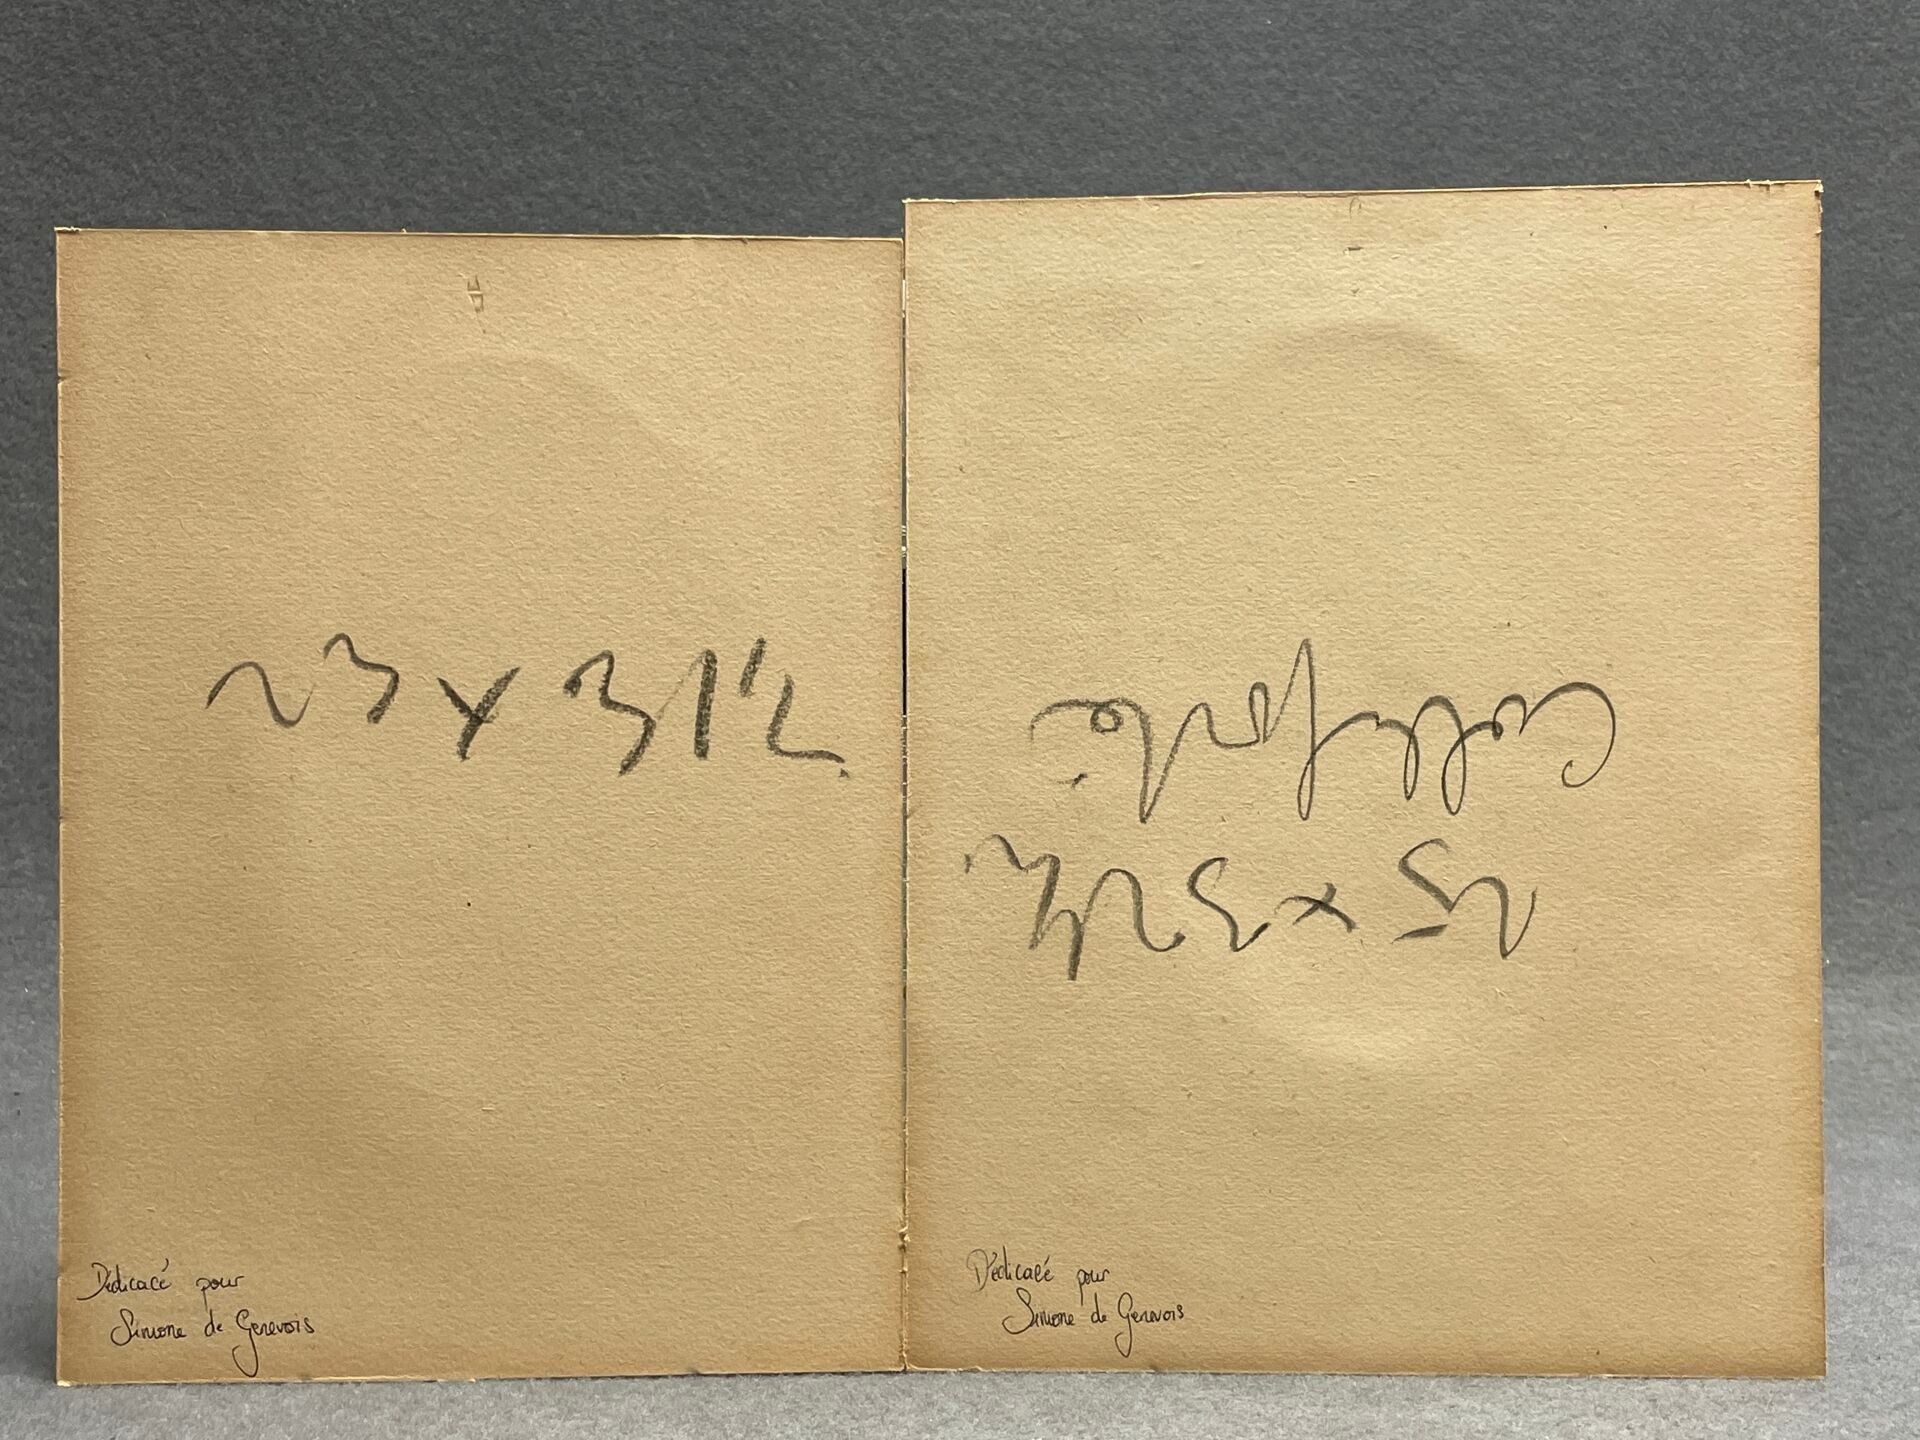 23 x 31 1/2
Dédicacé pour
Simone de Genevois
25 x 32 1/2
Dédicacé pour
Simone de Genevois